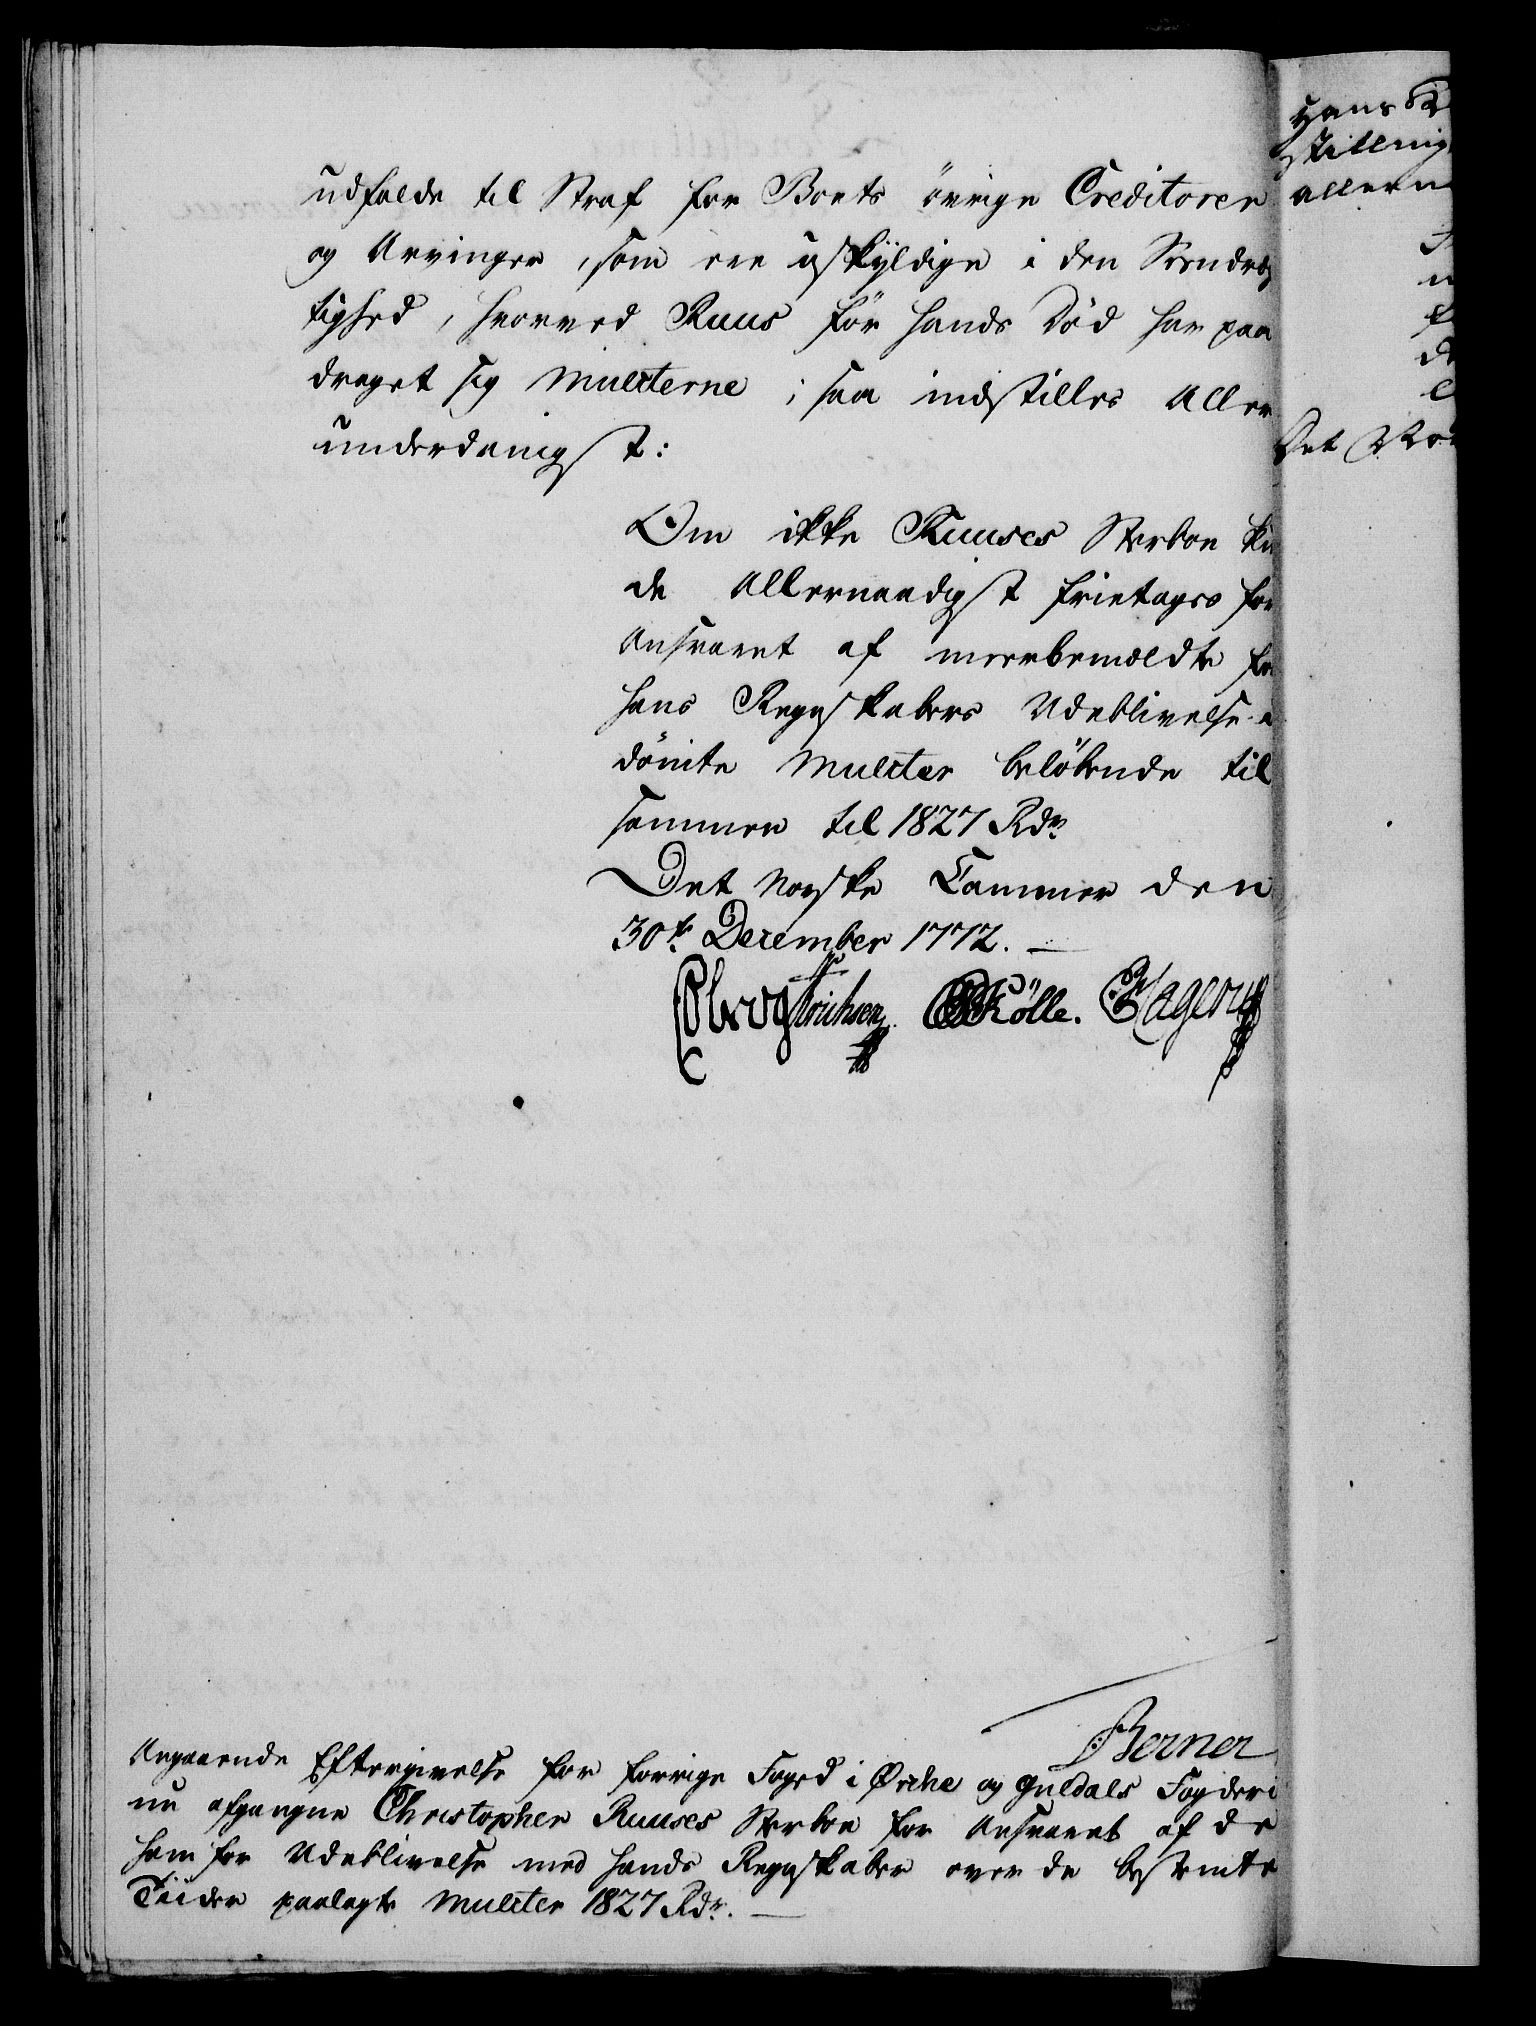 udfalde til Straf for Boets övrige Creditorer
og Arvinger, som ere uskyldige i den Seendræg
tighed, hvorved Ruus för hands Död har paa
draget sig Mulcterne; saa indstilles Aller
underdanigst:
Om ikke Ruuses Sterboe ku
de Allernaadigst frietages for
Ansvaret af meerbemeldte for
hans Regnskabers Udeblivelse i
dömte Mulcter belöbende til
sammen til 1827 Rdr
Det Norske Cammer den
30te December 1772.
Erichsen CKölle. EHagerup
Berner
Angaaende Eftergivelse for forrige Foged i Ørche og Guldals Fogderi
nu afgangne Christopher Ruuses Sterboe for Ansvaret af de
ham for Udeblivelse med hands Regnskaber over de bestemte
Tiider paalagte Mulcter 1827 Rdr.
Hans K
stilling
allern
Det No